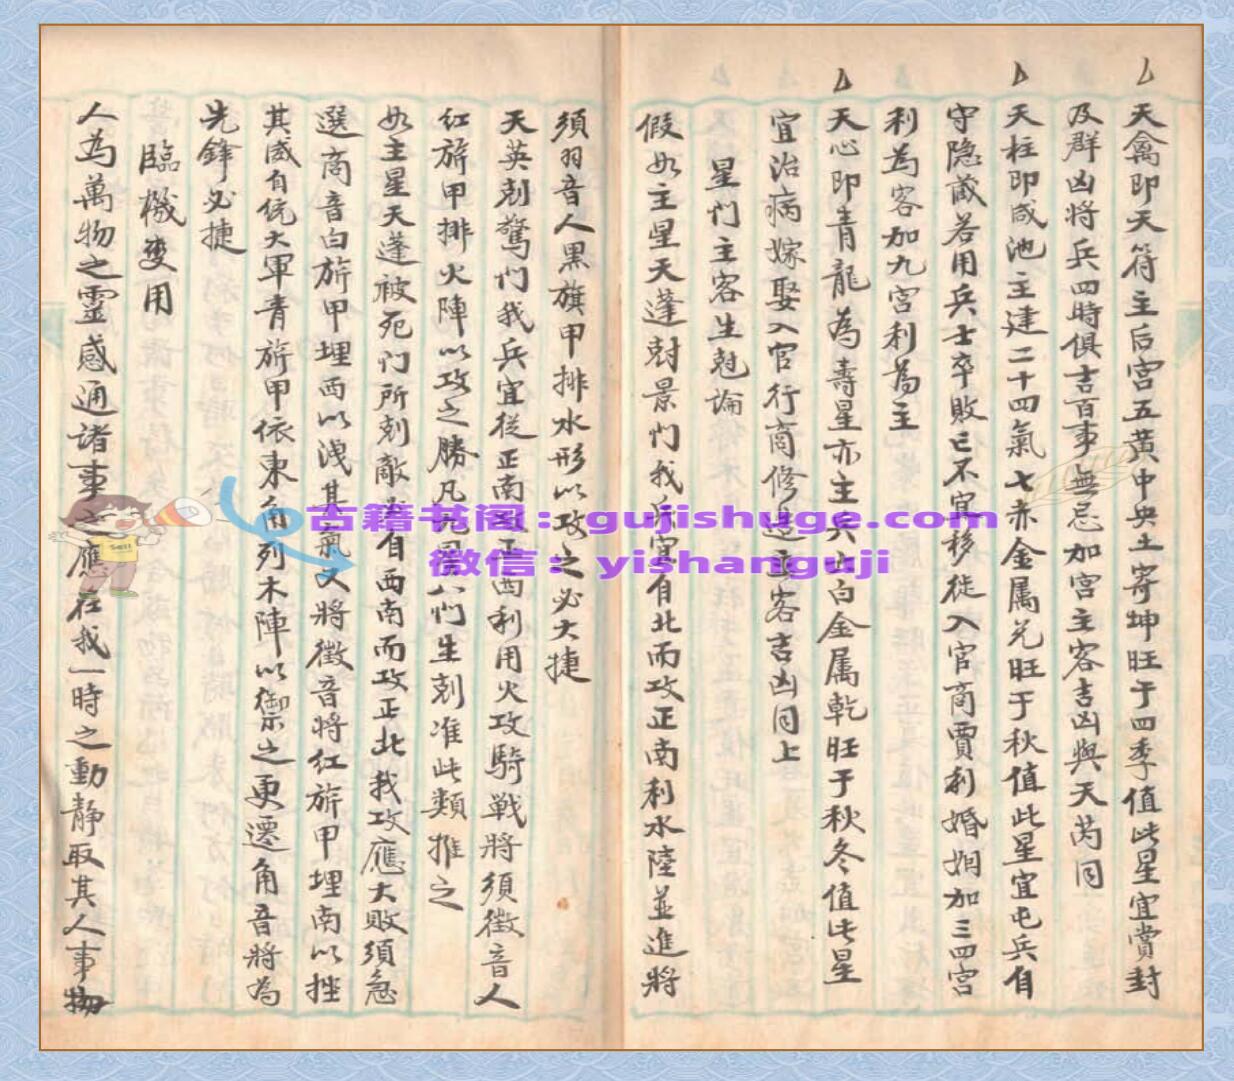 天禽即天符主后宮五黃中央土寄坤旺于四季值此星宜賞封
及群凶將兵四時俱吉百事無忌加宮主客吉凶與天芮同
天柱即咸池主建二十四氣七赤金属兑旺于秋值此星宜屯兵自
守隐藏若用兵士卒敗亡不宜移徙入官商賈利婚姻加三四宮
利為客加九宮利為主
天心即青龍為壽星亦主兵六白金属乾旺于秋冬值此星
宜治病嫁娶入官行商修造主客吉凶同上
星门主客生尅論
假如主星天蓬尅景门我兵宜自北而攻正南利水陸並進將
須羽音人黑旗甲排水形以攻之必大捷
天英剋驚门我兵宜從正南攻正西利用火攻騎戰將須徵音人
红旂甲排火陣以攻之勝凡九星八门生剋准此類推之
如主星天蓬被死门所剋敵必自西南而攻正北我攻應大敗須急
選商音白旂甲埋西以洩其氣又將徵音將红旂甲埋南以挫
其威自统大軍青旂甲依東角列木陣以禦之更遷角音將為
先鋒必捷
臨機變用
人為萬物之靈感通諸事之應在我一時之動静取其人事物
古籍书阁：gujishuge.com
微信：yishanguji